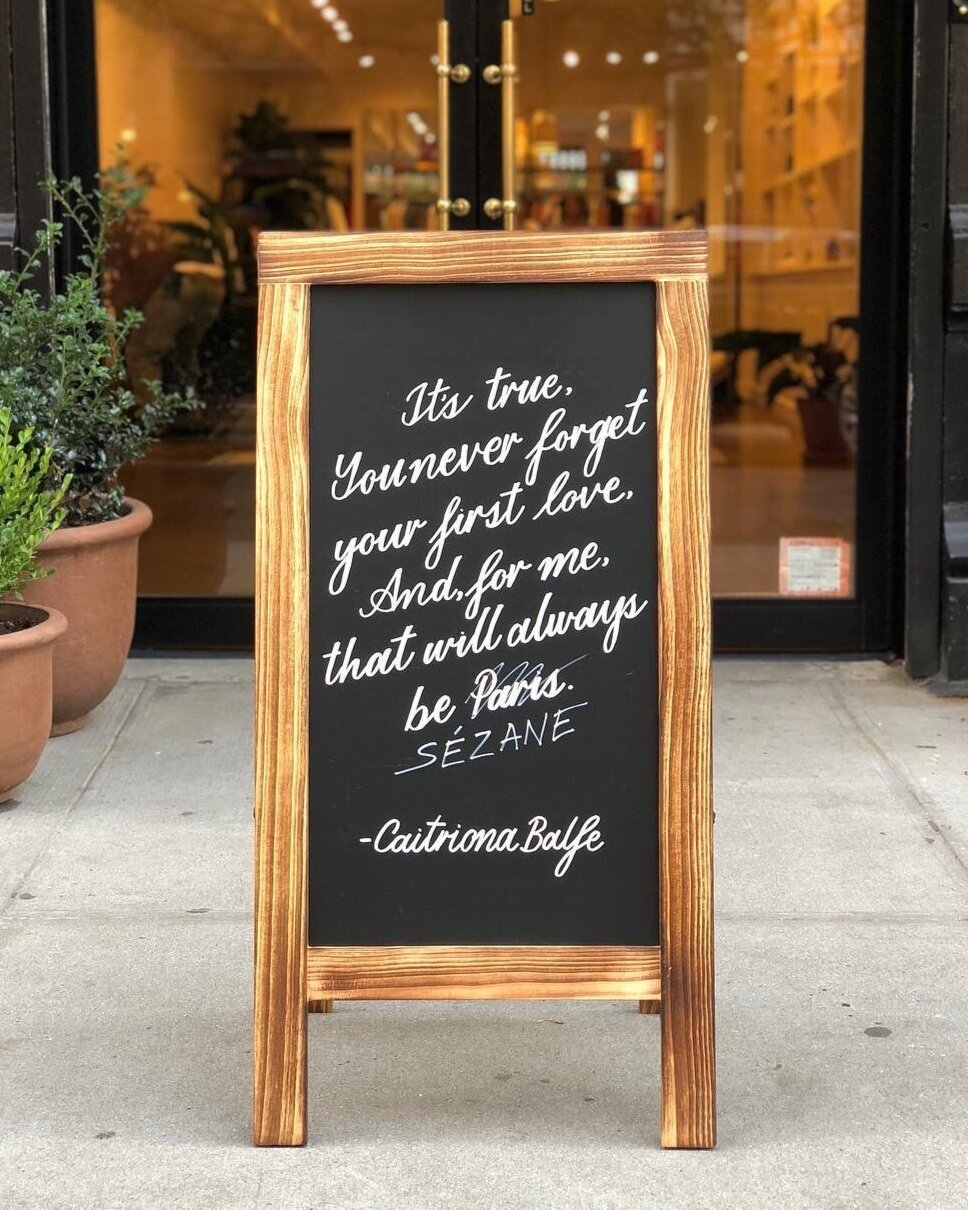 It's true,
You never forget
your first love.
And, for me,
that will always
be Paris.
SÉZANE
-Caitriona Balfe